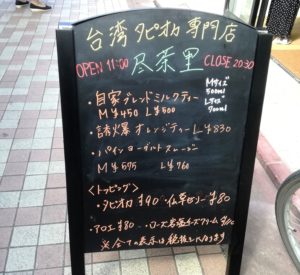 台湾タピオカ専門店
OPEN 11:00 尽茶里 CLOSE 20:30
Mサイズ
500ml
Lサイズ
700ml
・自家ブレンドミルクティー
M ¥450 L ¥500
・誘爆 オレンジティー L ¥830
・パインヨーグルトスムージー
M ¥575 L ¥760
<トッピング>
・タピオカ ¥90 ・仙草ゼリー ¥80
・アロエ ¥80 ・ローズ岩塩チーズフォーム
※全ての表示は税抜となります